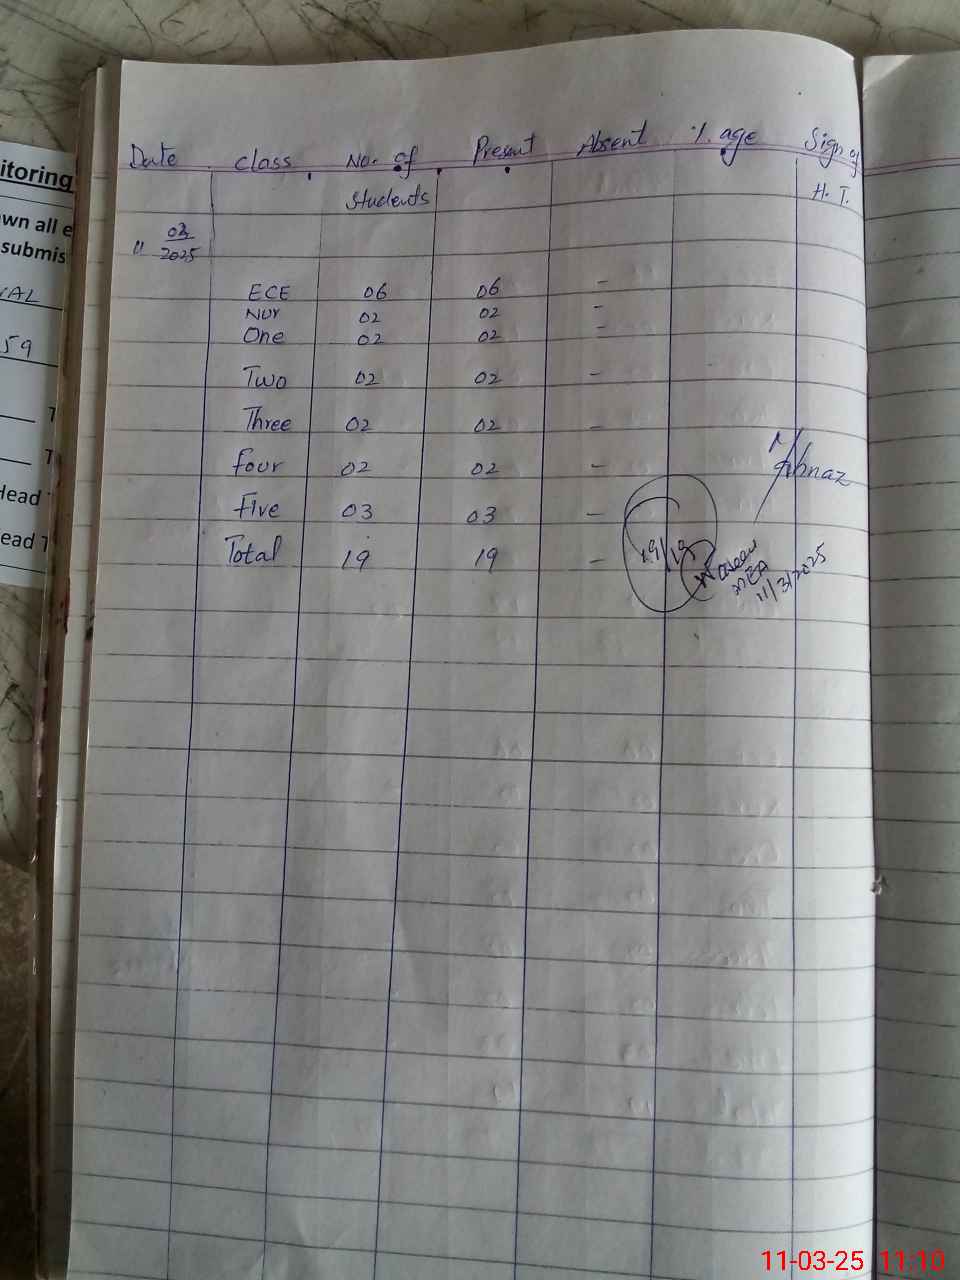 Date Class No. of Present Absent %. age Sign of
Students H. T.
11 03
2025
ECE 06 06 -
Nur 02 02 -
One 02 02 -
Two 02 02 -
Three 02 02 -
Four 02 02 -
Five 03 03 -
Total 19 19 -
19/19
MEA
11/3/2025
itoring
wn all e
submis
VAL
59
T
T
Head T
ead T
11-03-25 11:10